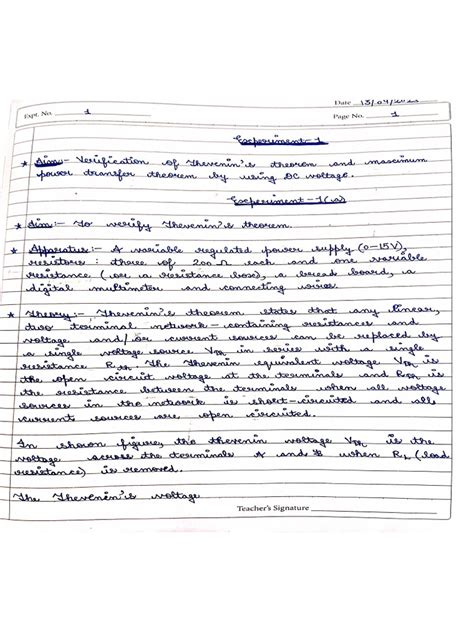 Date 13/04/2023
Expt. No. 1
Page No. 1
Experiment-1
* Aim:- Verification of Thevenin's theorem and maximum
power transfer theorem by using DC voltage.
Experiment-1(a)
* Aim:- To verify Thevenin's theorem.
* Apparatus:- A variable regulated power supply (0-15V),
resistors: three of 200Ω each and one variable
resistance (or a resistance box), a bread board, a
digital multimeter and connecting wires.
* Theory:- Thevenin's theorem states that any linear,
two terminal network - containing resistances and
voltage and/or current sources can be replaced by
a single voltage source VTh in series with a single
resistance RTh. The Thevenin equivalent voltage VTh is
the open circuit voltage at the terminals and RTh is
the resistance between the terminals when all voltage
sources in the network is short-circuited and all
current sources are open circuited.
In shown figure, the thevenin voltage VTh is the
voltage across the terminals A and B when RL (load
resistance) is removed.
The Thevenin's voltage
Teacher's Signature